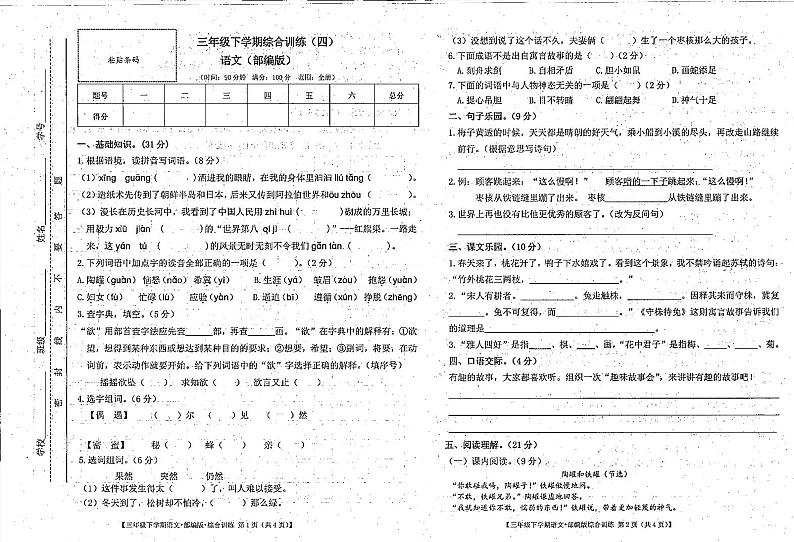 粘贴条码
三年级下学期综合训练（四）
语文（部编版）
（时间：90分钟 满分：100分 范围：全册）
题号 一 二 三 四 五 六 总分
得分
学号
姓名
班级
学校
密 封 线 内 不 要 答 题
一、基础知识。（31分）
1.根据语境，读拼音写词语。（8分）
（1）xīng guāng（ ）洒进我的眼睛，在我的身体里汩汩 liú tǎng（ ）。
（2）造纸术先传到了朝鲜半岛和日本，后来又传到阿拉伯世界和ōu zhōu（ ）。
（3）漫长在历史长河中，我看到了中国人民用 zhì huì（ ）砌成的万里长城；
用毅力 xiū jiàn（ ）的“世界第八 qí jì（ ）”---红旗渠。一路走
来，这 yán tú（ ）的风景无时无刻不令我们 gǎn tàn.（ ）。
2.下列词语中加点字的读音全部正确的一项是（ ）。（2分）
A.陶罐(guàn) 恼怒(nǎo) 希冀(yì) B.生涯(yá) 皱眉(zhòu) 抱怨(yuàn)
C.妇女(fù) 忙碌(lù) 应验(yàn) D.逼迫(bī) 遵循(xún) 挣脱(zhēng)
3.查字典，填空。（5分）
“欲”用部首查字法应先查____部，再查____画。“欲”在字典中的解释有：①欲
望，想得到某种东西或想达到某种目的的要求；②想要，希望；③副词，将要；在动
词前，表示动作就要开始。给下列词语中的“欲”字选择正确的解释。（填序号）
摇摇欲坠（ ） 求知欲（ ） 欲言又止（ ）
4.选字组词。（6分）
【偶 遇】（ ）尔 （ ）见 （ ）然
【密 蜜】 秘（ ） 蜂（ ） 亲（ ）
5.选词组词。（6分）
果然 突然 仍然
（1）这件事发生得太（ ）了，叫人难以接受。
（2）冬天到了，松树却不怕冷，（ ）那么绿。
【三年级下学期语文·部编版·综合训练 第1页（共4页）】
（3）没想到说了这个话不久，夫妻俩（ ）生了一个枣核那么大的孩子。
6.下面成语不是出自寓言故事的是（ ）（2分）
A.刻舟求剑 B.自相矛盾 C.胆小如鼠 D.画蛇添足
7.下面的词语中与人物神态无关的一项是（ ）（2分）
A.提心吊胆 B.目不转睛 C.翩翩起舞 D.神气十足
二、句子乐园。（9分）
1.梅子黄透的时候，天天都是晴朗的好天气，乘小船到小溪的尽头，再改走山路继续
前行。（根据意思写诗句）
2.例：顾客跳起来：“这么慢啊！” 顾客噌的一下子跳起来：“这么慢啊！”
枣核从铁链缝里蹦了出来。 枣核____从铁链缝里蹦了出来。
3.世界上再也没有比他更优秀的顾客了。（改为反问句）
三、课文乐园。（10分）
1.春天来了，桃花开了，鸭子下水嬉戏了。看到这个景象，我不禁吟诵起苏轼的诗句：
“竹外桃花三两枝，____。”
2.“宋人有耕者。____。兔走触株，____。因释其耒而守株，冀复
____。兔不可复得，而____。”《守株待兔》这则寓言故事告诉我们
的道理是____
3.“雅人四好”是指____、棋、____、画。“花中君子”是指梅、____、____、菊。
四、口语交际。（4分）
有趣的故事，大家都喜欢听。组织一次“趣味故事会”，来讲讲有趣的故事吧！
五、阅读理解。（21分）
（一）课内阅读。（9分）
陶罐和铁罐（节选）
“你敢碰我吗，陶罐子！”铁罐傲慢地问。
“不敢，铁罐兄弟。”陶罐谦虚地回答。
“我就知道你不敢，懦弱的东西！”铁罐说，带着更加轻蔑的神气。
【三年级下学期语文·部编版综合训练 第2页（共4页）】